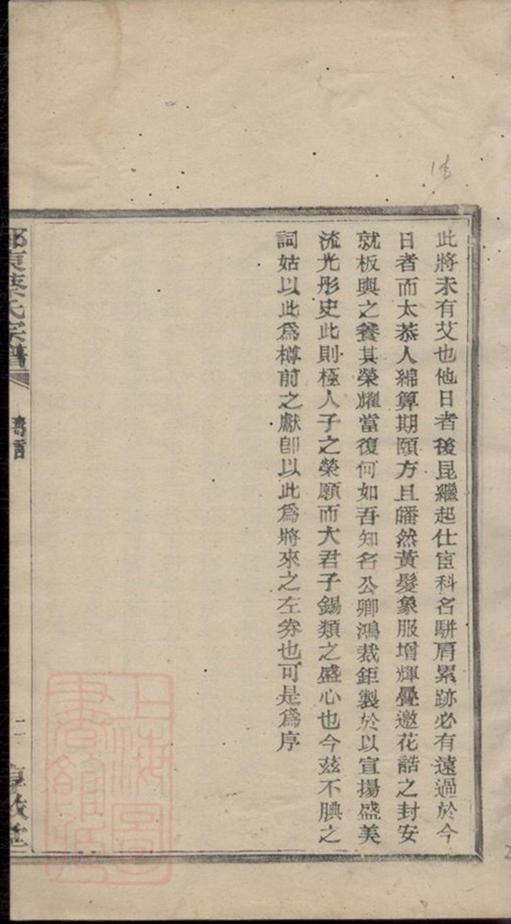 此將未有艾也他日者後昆繼起仕宦科名駢肩累跡必有遠過於今
日者而太恭人綿算期頤方且皤然黃髮象服增輝疊邀花誥之封安
就板輿之養其榮耀當復何如吾知名公卿鴻裁鉅製於以宣揚盛美
流光彤史此則極人子之榮願而大君子錫類之盛心也今茲不腆之
詞姑以此為樽前之獻卽以此為將來之左券也可是為序
東蔡氏宗譜
壽言
二
上海圖書館藏